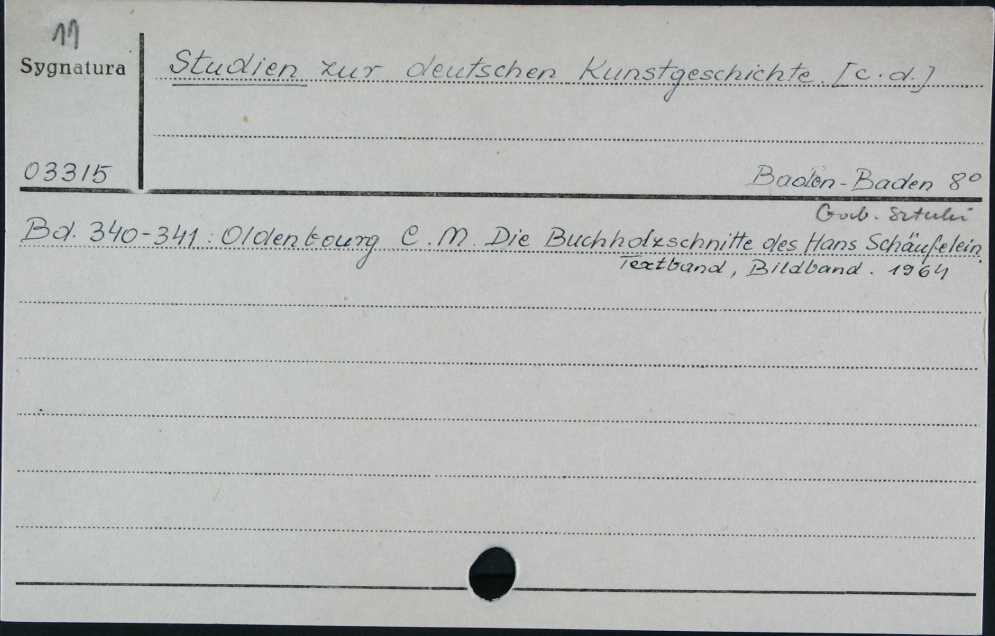 11
Sygnatura
Studien zur deutschen Kunstgeschichte. [c.d.]
03315
Baden-Baden 8°
Gab. Sztuki
Bd. 340-341: Oldenbourg C. M. Die Buchholzschnitte des Hans Schäufelein.
Textband, Bildband. 1964